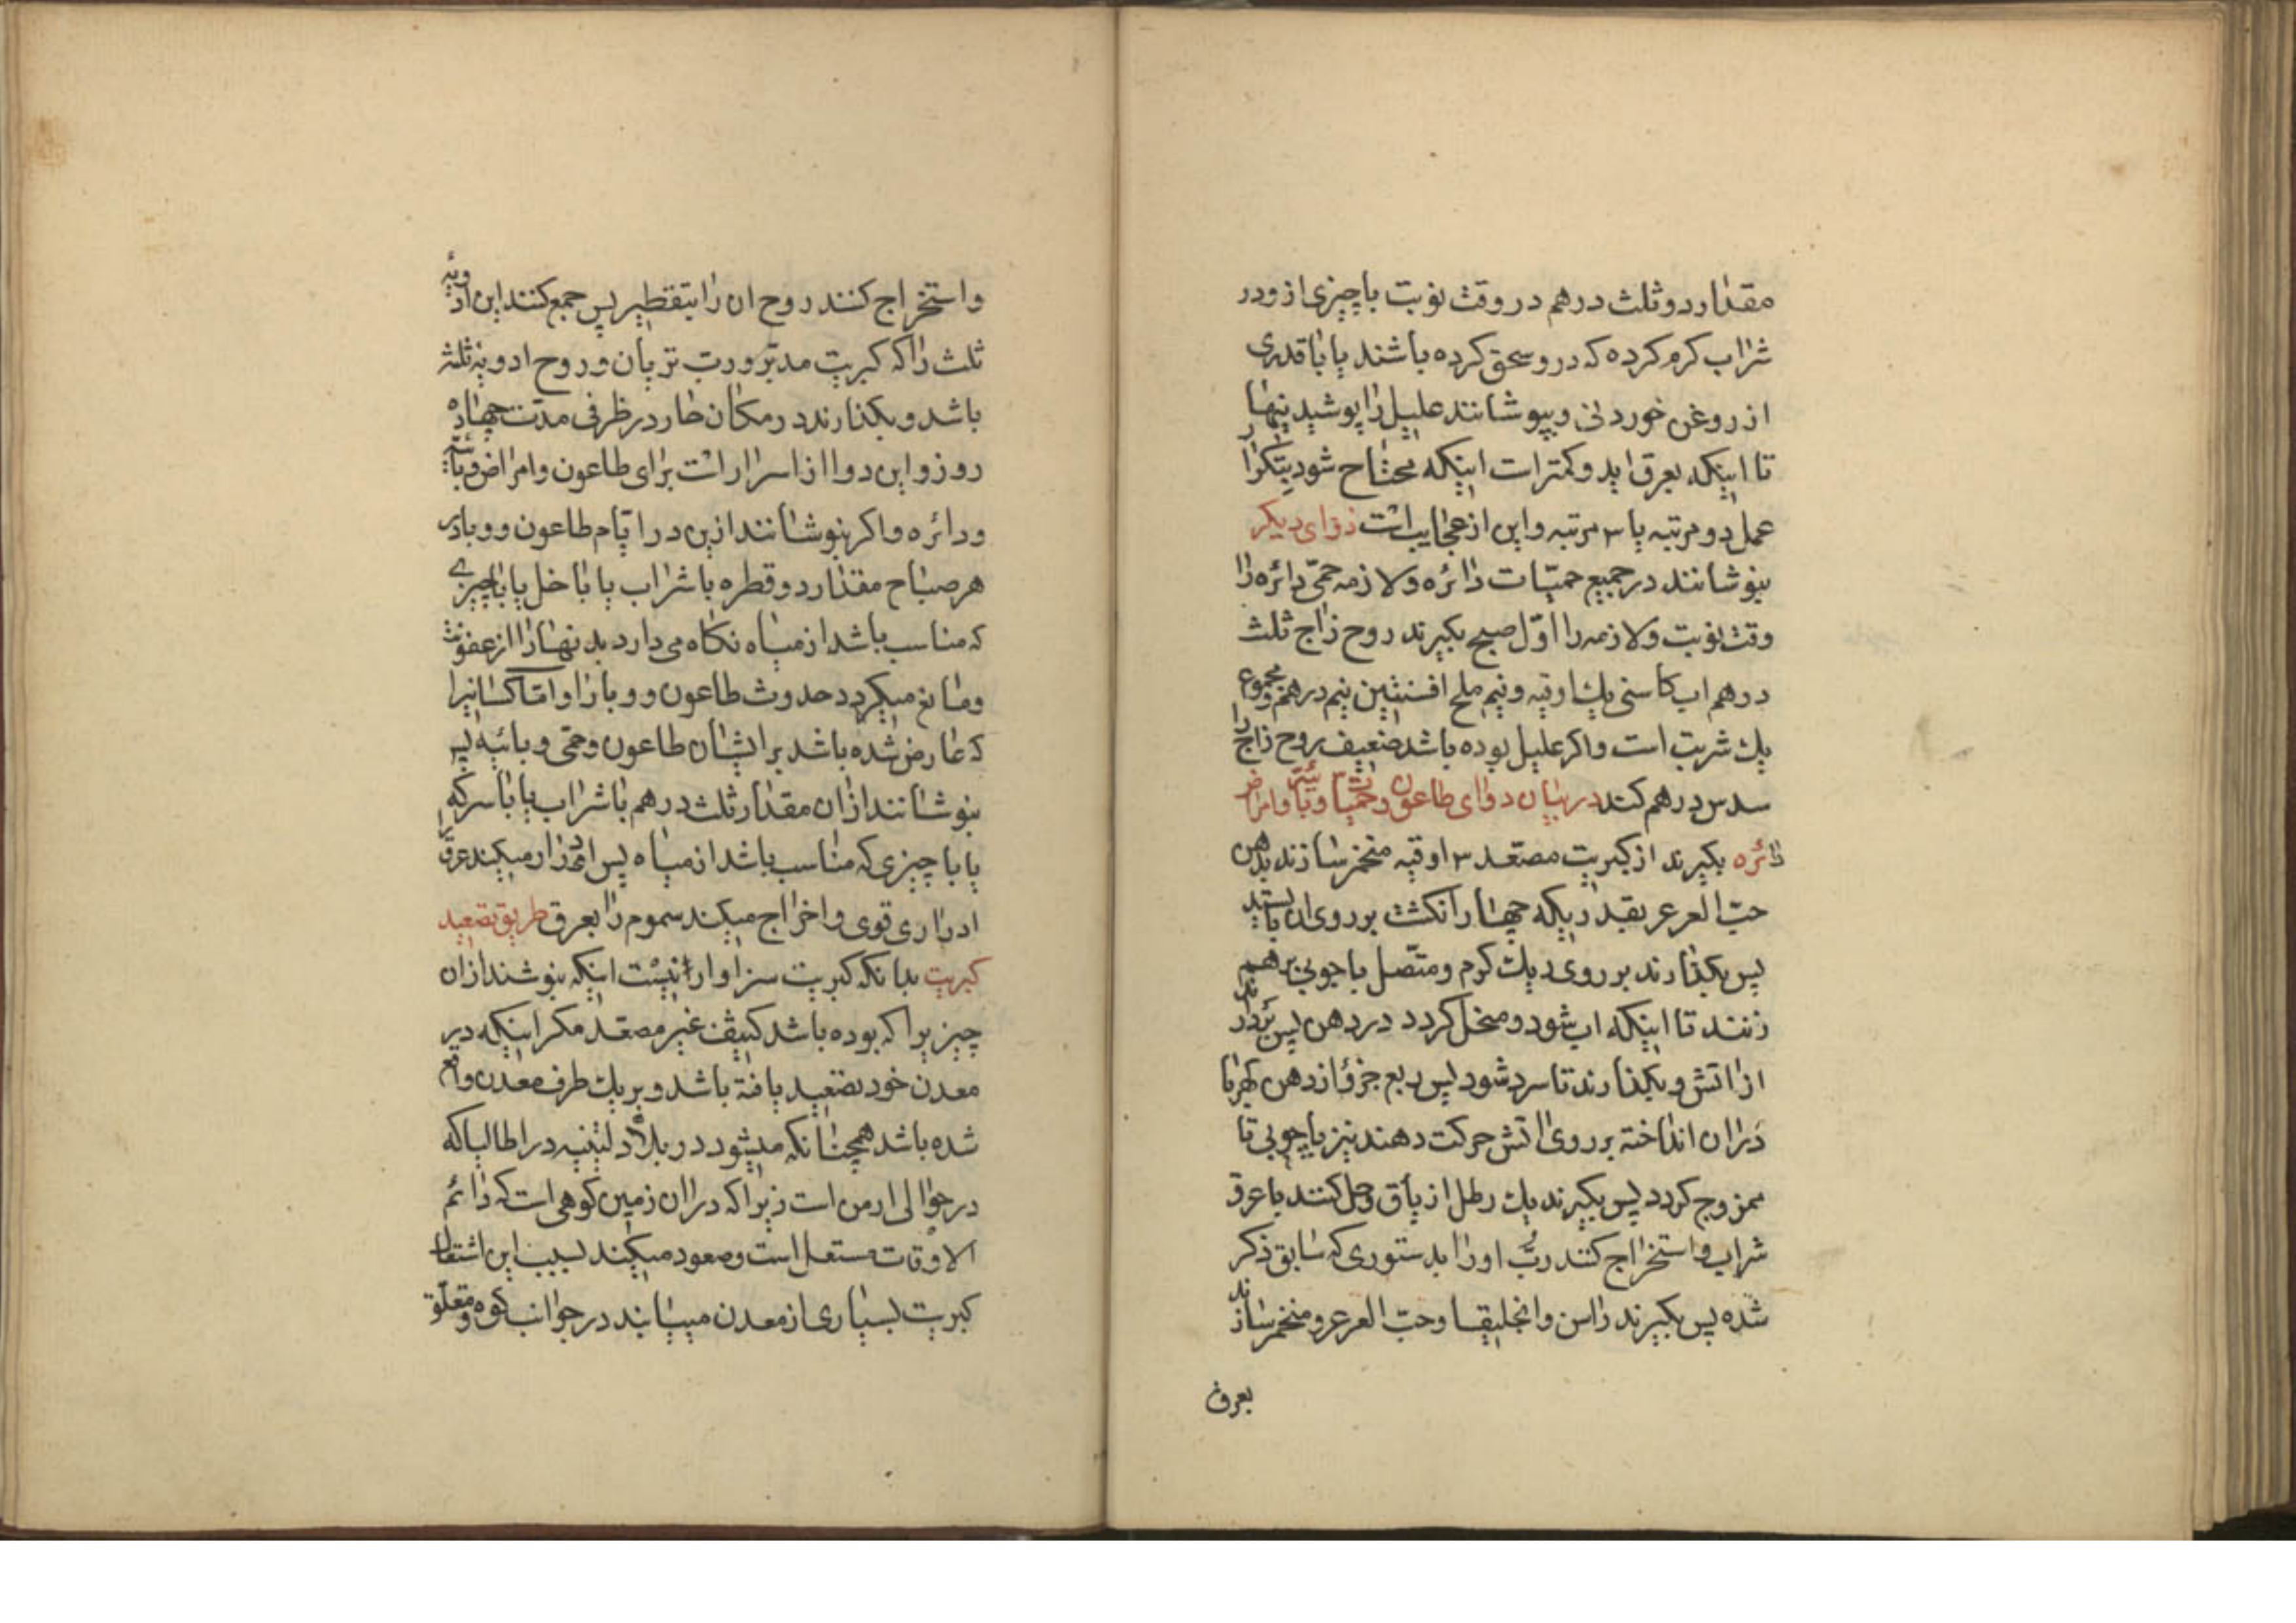 مقدار دو ثلث درهم در وقت نوبت با چیزی از ودر
شراب کرم کرده که در و سحق کرده باشند یا با قدری
از روغن خوردنی و بپوشانند علیل را پوشیدنیها
تا اینکه بعرق اید و کمتر است اینکه محتاح شود بتکرار
عمل دو مرتبه یا ۳ مرتبه و این از عجایب است دوای دیکر
بنوشانند در جمیع حمیّات دائره و لازمه حمّی دائره را
وقت نوبت و لازمه را اوّل صبح بکیرند روح زاج ثلث
درهم اب کاسنی یك اوقیه و نیم ملح افسنتین نیم درهم و مجموع
یك شربت است و اکر علیل بوده باشد ضعیف روح زاج را
سدس درهم کنند در بیان دوای طاعون و حمیّات وبائیّه و امراض
دائره بکیرند از کبریت مصعّد ۳ اوقیه منخمر سازند بدهن
حبّ العرعر بقدریکه چهار انکشت بر روی ان بایستد
پس بکذارند بر روی دیك کرم و متّصل با چوبی بر هم
زنند تا اینکه اب شود و منحل کردد در دهن پس بردارند
از اتش و بکذارند تا سرد شود پس ربع جزؤ از دهن کهربا
در ان انداخته بر روی اتش حرکت دهند نیز با چوبی تا
ممزوج کردد پس بکیرند یك رطل از یاق و حل کنند با عرق
شراب و استخراج کنند ربّ او را بدستوری که سابق ذکر
شده پس بکیرند راسن و انجلیقا و حبّ العرعر و منخمر سازند
بعرق
و استخراج کنند روح ان را بتقطیر پس جمع کنند این ادویهٔ
ثلث را که کبریت مدبّر و ربّ تریان و روح ادویهٔ ثلثه
باشد و بکذارند در مکان حار در ظرفی مدّت چهارده
روز و این دوا از اسرار است برای طاعون و امراض وبائیّه
و دائره و اکر بنوشانند ازین در ایّام طاعون و وبا در
هر صباح مقدار دو قطره با شراب یا با خل یا با چیزے
که مناسب باشد از میاه نکاه می دارد بدنها را از عفونت
و مانع میکردد حدوث طاعون و وبا را و امّا کسانیرا
که عارض شده باشد بر ایشان طاعون و حمّی وبائیه پس
بنوشانند از ان مقدار ثلث درهم با شراب یا با سرکه
یا با چیزی که مناسب باشد از میاه پس ادرار میکند عرق را
ادراری قوی و اخراج میکند سموم را بعرق طریق تصعید
کبریت بدانکه کبریت سزاوار نیست اینکه بنوشند از ان
چیزیرا که بوده باشد کثیف غیر مصعّد مکر اینکه در
معدن خود تصعید یافته باشد و بر یك طرف معدن واقع
شده باشد همچنانکه میشود در بلاد لتنیه در اطالیا که
در حوالی ارمن است زیرا که در ان زمین کوهی است که دائم
الاوقات مستعل است و صعود میکند بسبب این اشتعال
کبریت بسیاری از معدن میسایند در جوانب کوه و متعلّق